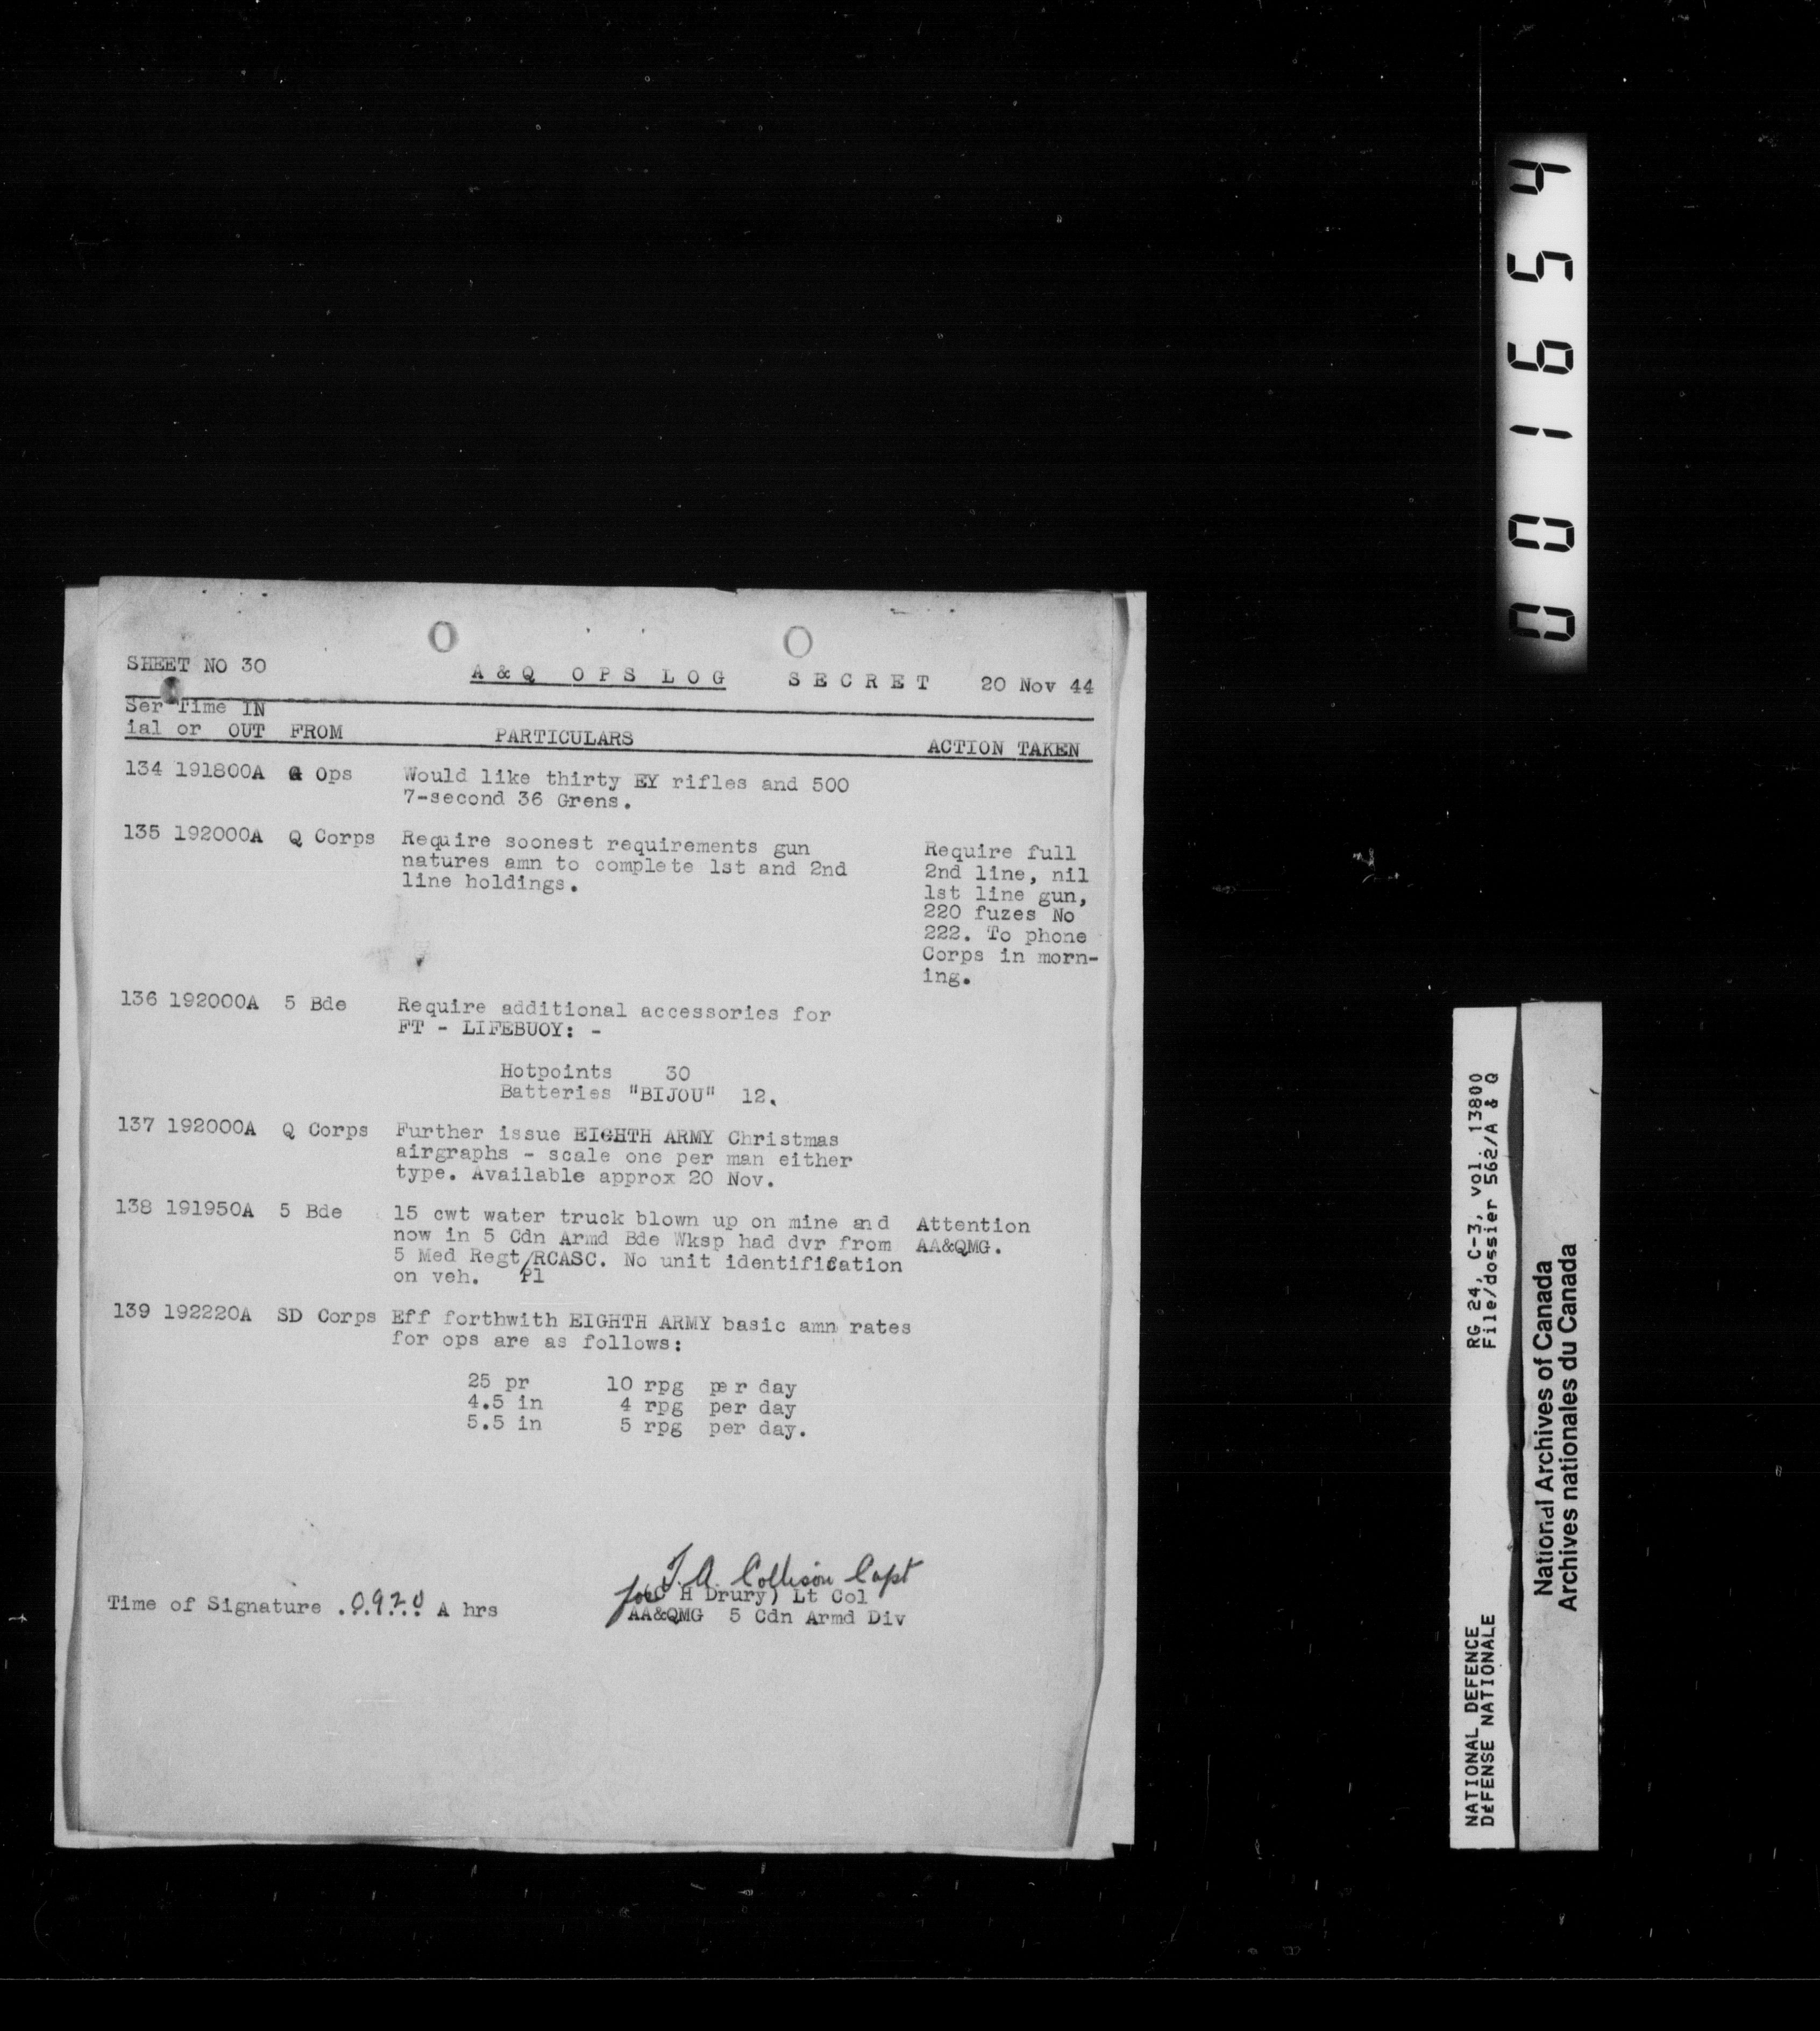 SHEET NO 30
A & Q  O P S  L O G  S E C R E T  20 Nov 44
Ser Time IN
ial or OUT FROM PARTICULARS ACTION TAKEN
134 191800A G Ops Would like thirty EY rifles and 500
7-second 36 Grens.
135 192000A Q Corps Require soonest requirements gun
natures amn to complete 1st and 2nd
line holdings.
Require full
2nd line, nil
1st line gun,
220 fuzes No
222. To phone
Corps in morn-
ing.
136 192000A 5 Bde Require additional accessories for
FT - LIFEBUOY: -
Hotpoints 30
Batteries "BIJOU" 12.
137 192000A Q Corps Further issue EIGHTH ARMY Christmas
airgraphs - scale one per man either
type. Available approx 20 Nov.
138 191950A 5 Bde 15 cwt water truck blown up on mine and
now in 5 Cdn Armd Bde Wksp had dvr from
5 Med Regt/RCASC. No unit identification
on veh. Pl
Attention
AA&QMG.
139 192220A SD Corps Eff forthwith EIGHTH ARMY basic amn rates
for ops are as follows:
25 pr 10 rpg per day
4.5 in 4 rpg per day
5.5 in 5 rpg per day.
J.A. Collison Capt
for (C H Drury) Lt Col
Time of Signature .0.9.2.0 A hrs
AA&QMG 5 Cdn Armd Div
001654
RG 24, C-3, vol. 13800
File/dossier 562/A & Q
NATIONAL DEFENCE
DÉFENSE NATIONALE
National Archives of Canada
Archives nationales du Canada